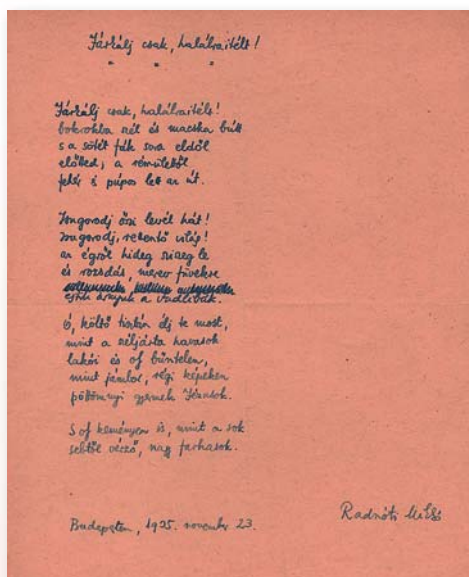 Járkálj csak, halálraitélt!
Járkálj csak, halálraitélt!
bokrokba szél és macska bútt
s a sötét fák sora eldől
előtted; a rémülettől
fehér s púpos lett az út.
Zsugorodj őszi levél hát!
zsugorodj, rettentő világ!
az égről hideg sziszeg le
és rozsdás, merev füvekre
ejtik árnyuk a vadlibák.
Ó, költő tisztán élj te most,
mint a széljárta havasok
lakói és oly bűntelen,
mint jámbor, régi képeken
pöttömnyi gyermek Jézusok.
S oly keményen is, mint a sok
sebtől vérző, nagy farkasok.
Budapesten, 1935. november 23.
Radnóti Miklós